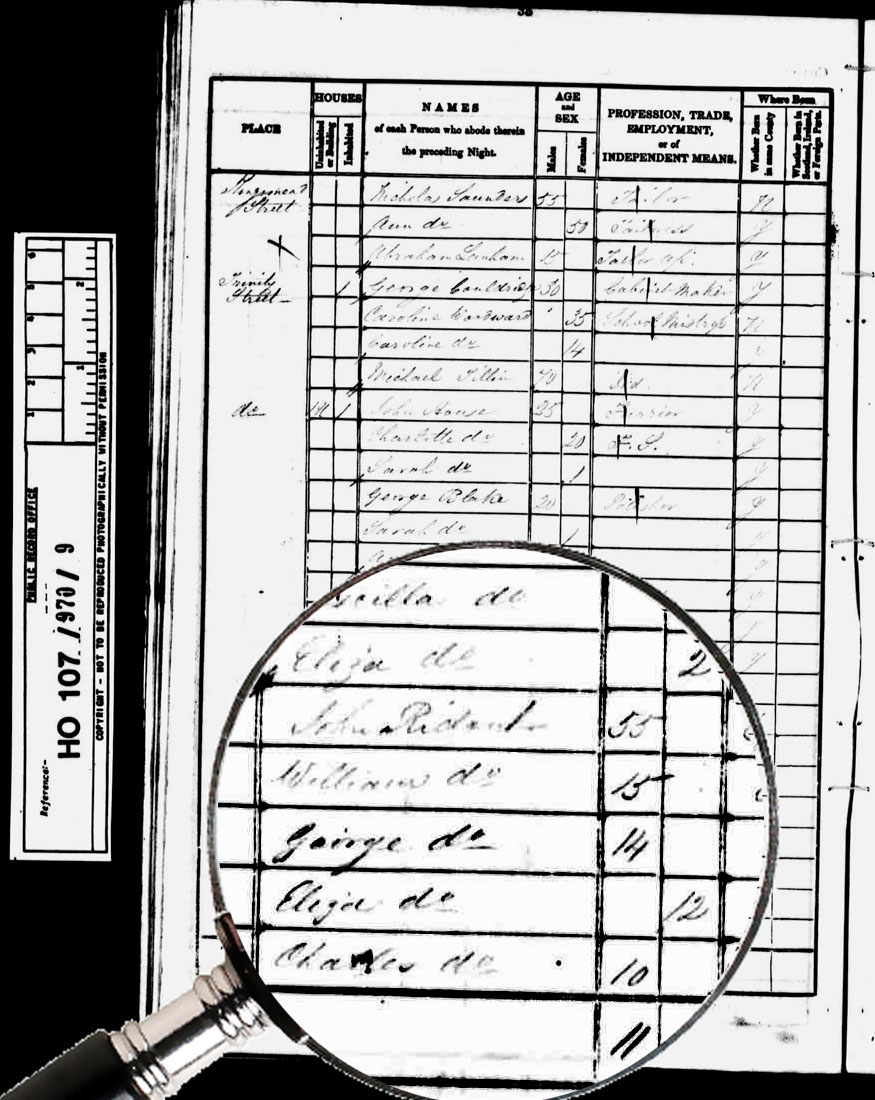 PLACE
HOUSES
Uninhabited or Building
Inhabited
NAMES
of each Person who abode therein
the preceding Night.
AGE
and
SEX
Males
Females
PROFESSION, TRADE,
EMPLOYMENT,
or of
INDEPENDENT MEANS.
Where Born
Whether Born in same County
Whether Born in Scotland, Ireland, or Foreign Parts.
Street Nicholas Saunders 55 Tailor N
Ann do 50 Tailoress Y
Abraham Lanham 15 Tailor ap. Y
Trinity
Street 1 George 30 Cabinet Maker Y
Caroline Woodward 35 School Mistress N
Caroline do 14
Michael 70 N
do 1 John House 25 Y
Charlotte do 20 F.S. Y
Sarah do 1 Y
George Blake 20 Y
Sarah do 1
do
Eliza do 2
John Ridout 55
William do 15
George do 14
Eliza do 12
Charles do 10
11
Reference:-
PUBLIC RECORD OFFICE
HO 107 / 970 / 9
COPYRIGHT - NOT TO BE REPRODUCED PHOTOGRAPHICALLY WITHOUT PERMISSION
1 2 3 4 5 6
1 2